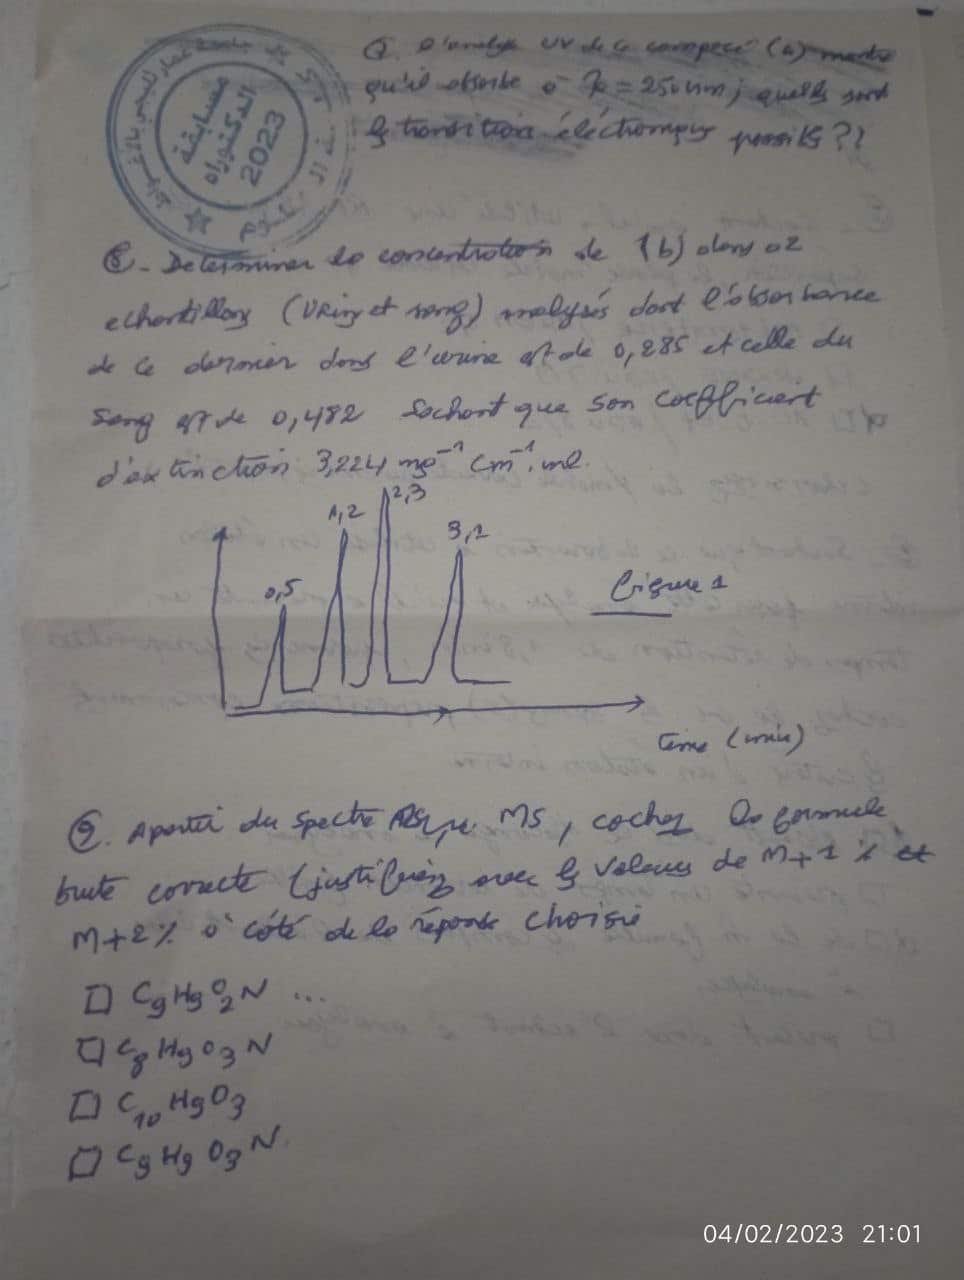 مسابقة
الدكتوراه
2023
Q. L'analyse UV de ce composé (a) montre
qu'il absorbe à = 250nm; quells sont
transition éléctroniques possibls ??
8. Determiner la concentration de (b) dans 02
echantillons (Uriny et sang) analysés dont l'absorbance
de ce dernier dans l'urine est de 0,285 et celle du
sang est de 0,482 Sachant que son coefficient
d'extinction 3,224 mg⁻¹ cm⁻¹.ml.
0,5
1,2
2,3
3,1
figure 1
time (min)
9. Apartir du spectre MS, cochez la formule
brute correcte (justifiez avec valeurs de M+1 % et
M+2% à côté de la réponse choisie
□ C₉H₉O₂N ...
□ C₈H₉O₃N
□ C₁₀H₉O₃
□ C₉H₉O₃N.
04/02/2023 21:01